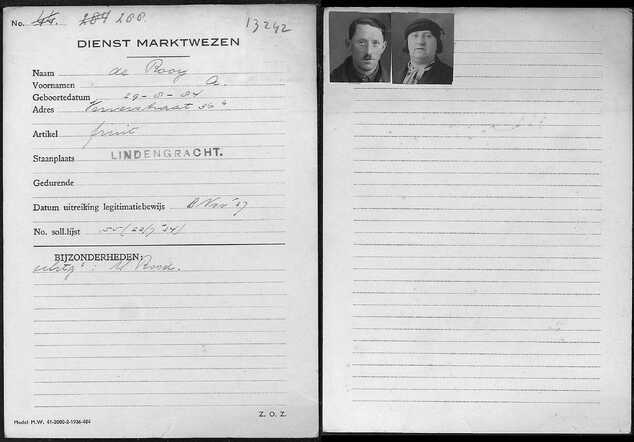 No. 44. 284 288.
13242
DIENST MARKTWEZEN
Naam de Rooy
Voornamen A.
Geboortedatum 29-8-84
Adres
Artikel fruit
Staanplaats LINDENGRACHT.
Gedurende
Datum uitreiking legitimatiebewijs 8 Nov '37
No. soll.lijst 55 (22/7 '34)
BIJZONDERHEDEN:
Z. O. Z.
Model M.W. 41-2000-2-1936-484